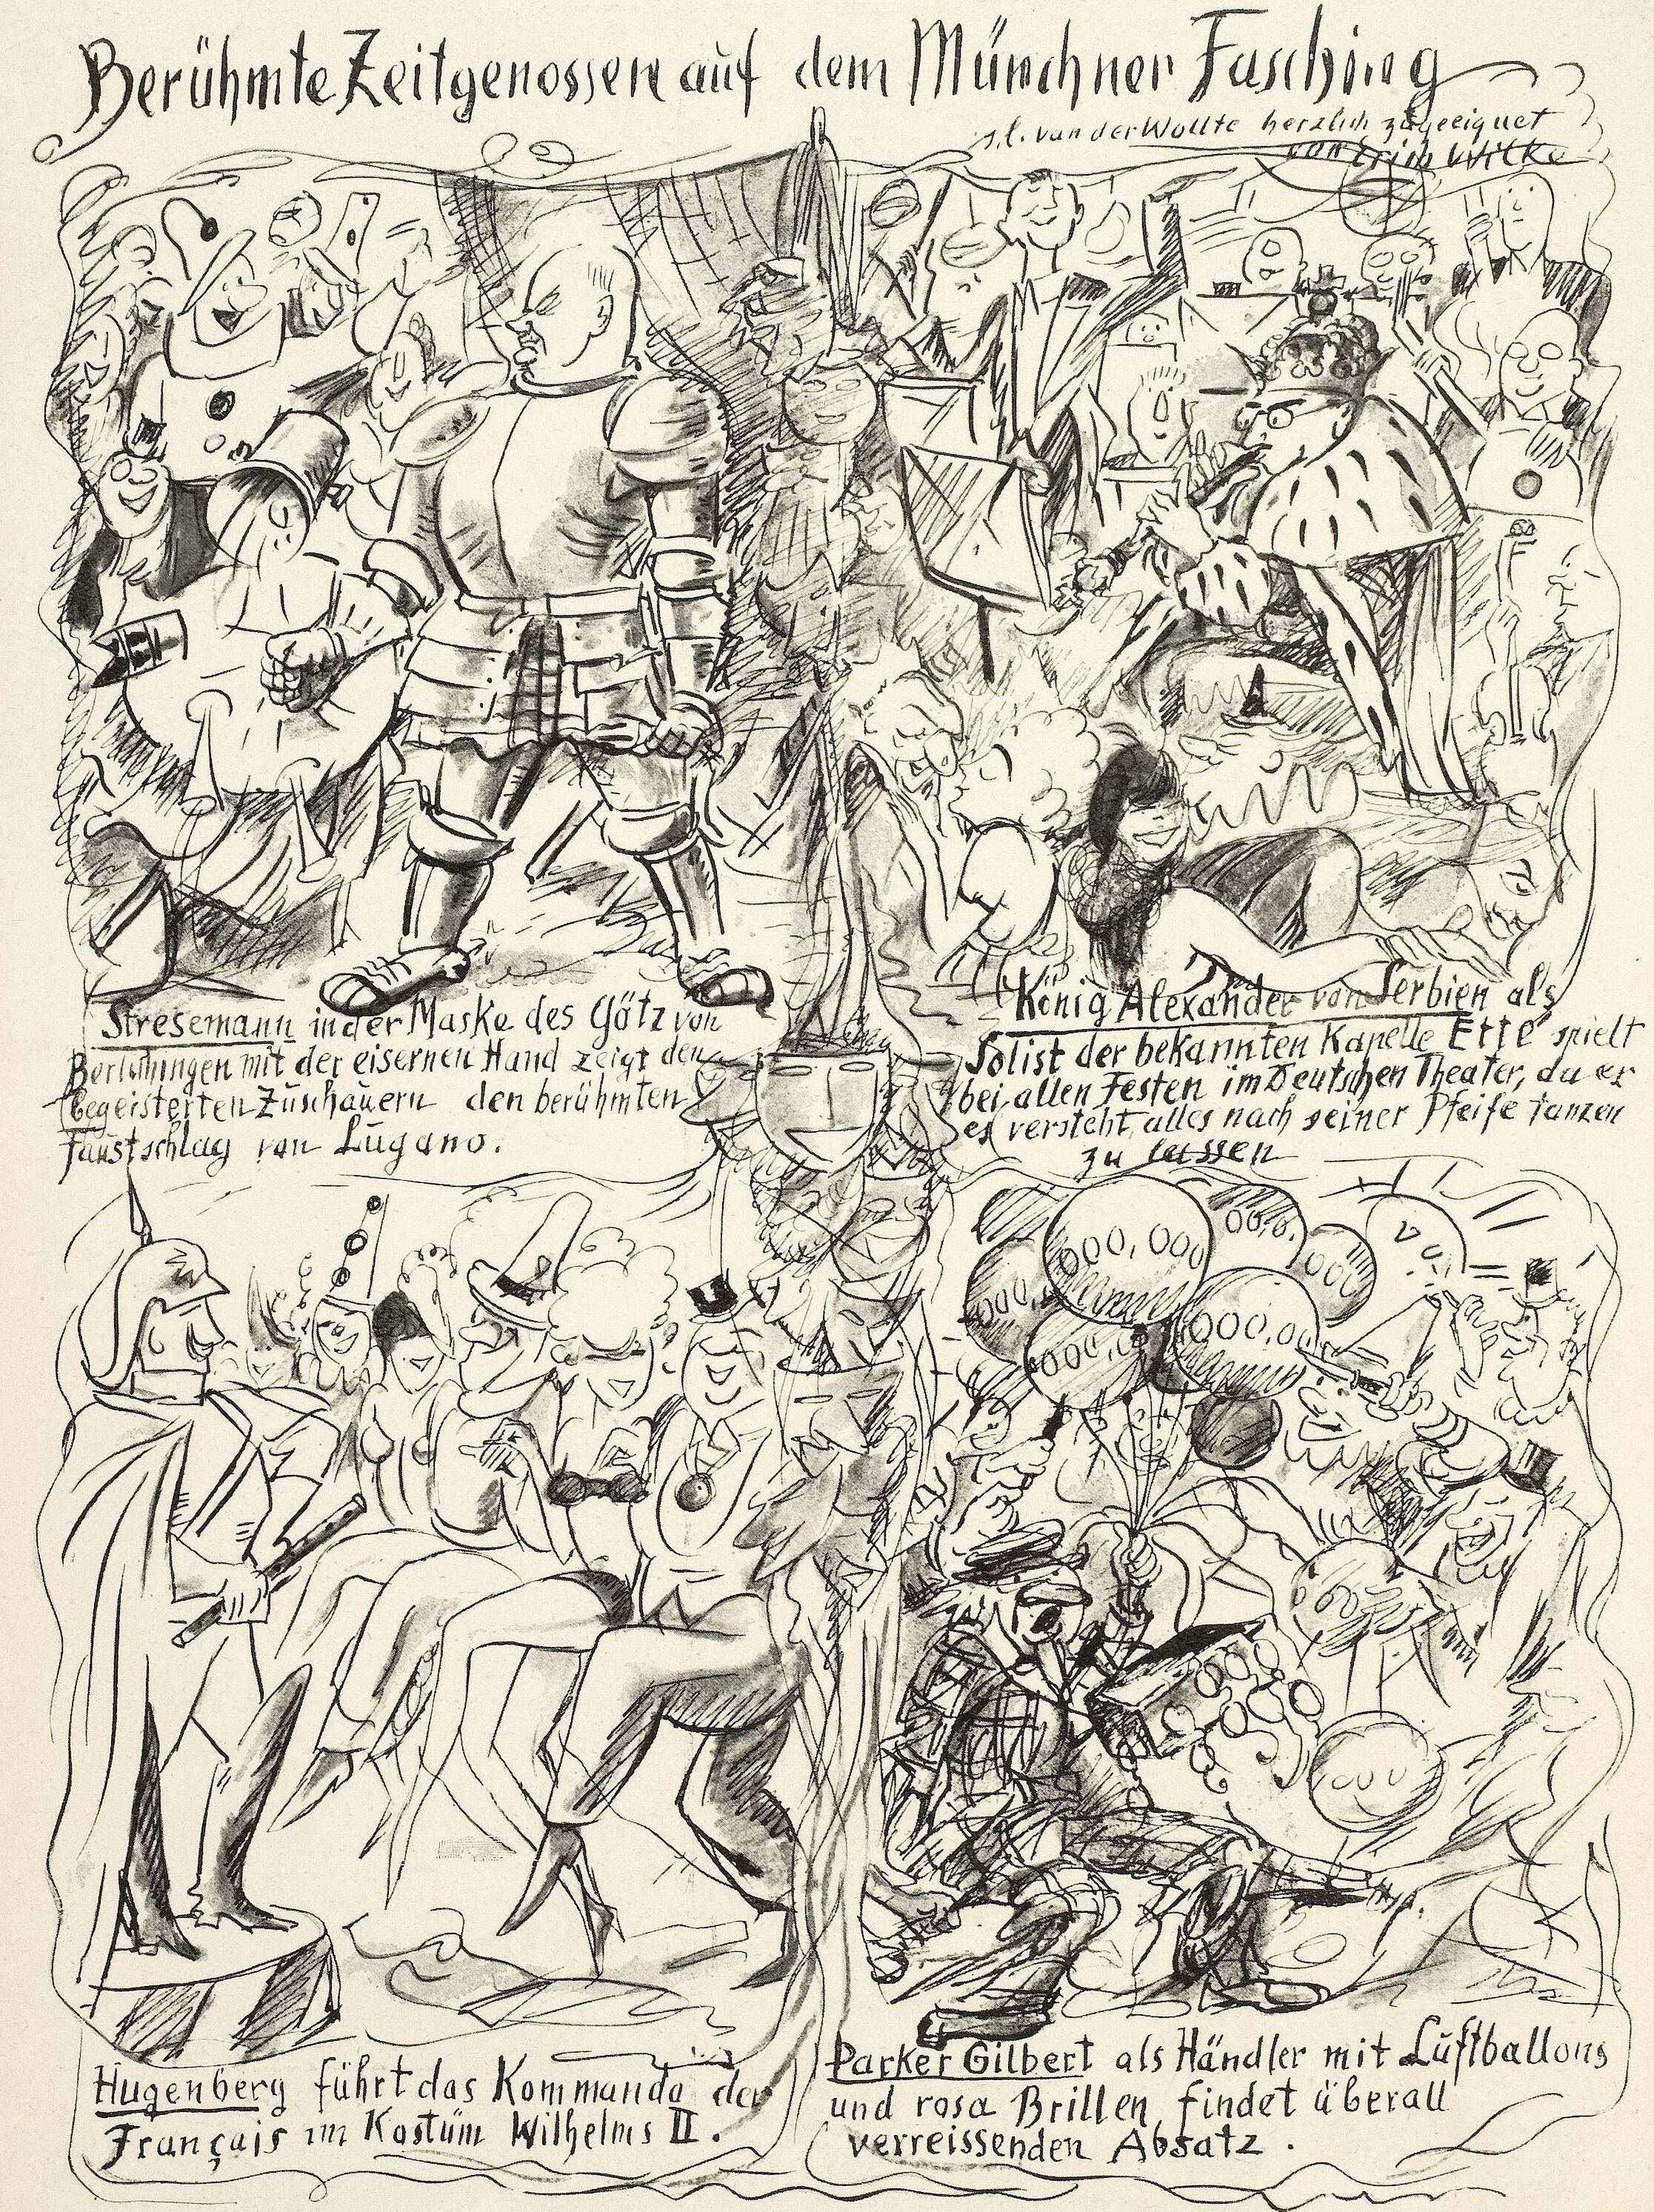 Berühmte Zeitgenossen auf dem Münchner Fasching
van der Wollte herzlich zugeeignet
von Erich Wilke
Stresemann in der Maske des Götz von
Berlichingen mit der eisernen Hand zeigt den
begeisterten Zuschauern den berühmten
Faustschlag von Lugano.
König Alexander von Serbien als
Solist der bekannten Kapelle Etté spielt
bei allen Festen im Deutschen Theater, da er
es versteht, alles nach seiner Pfeife tanzen
zu lassen
000,000
00,0.
000
000
000,0
000,00
000
Hugenberg führt das Kommando der
Français im Kostüm Wilhelms II.
Parker Gilbert als Händler mit Luftballons
und rosa Brillen, findet überall
verreissenden Absatz.